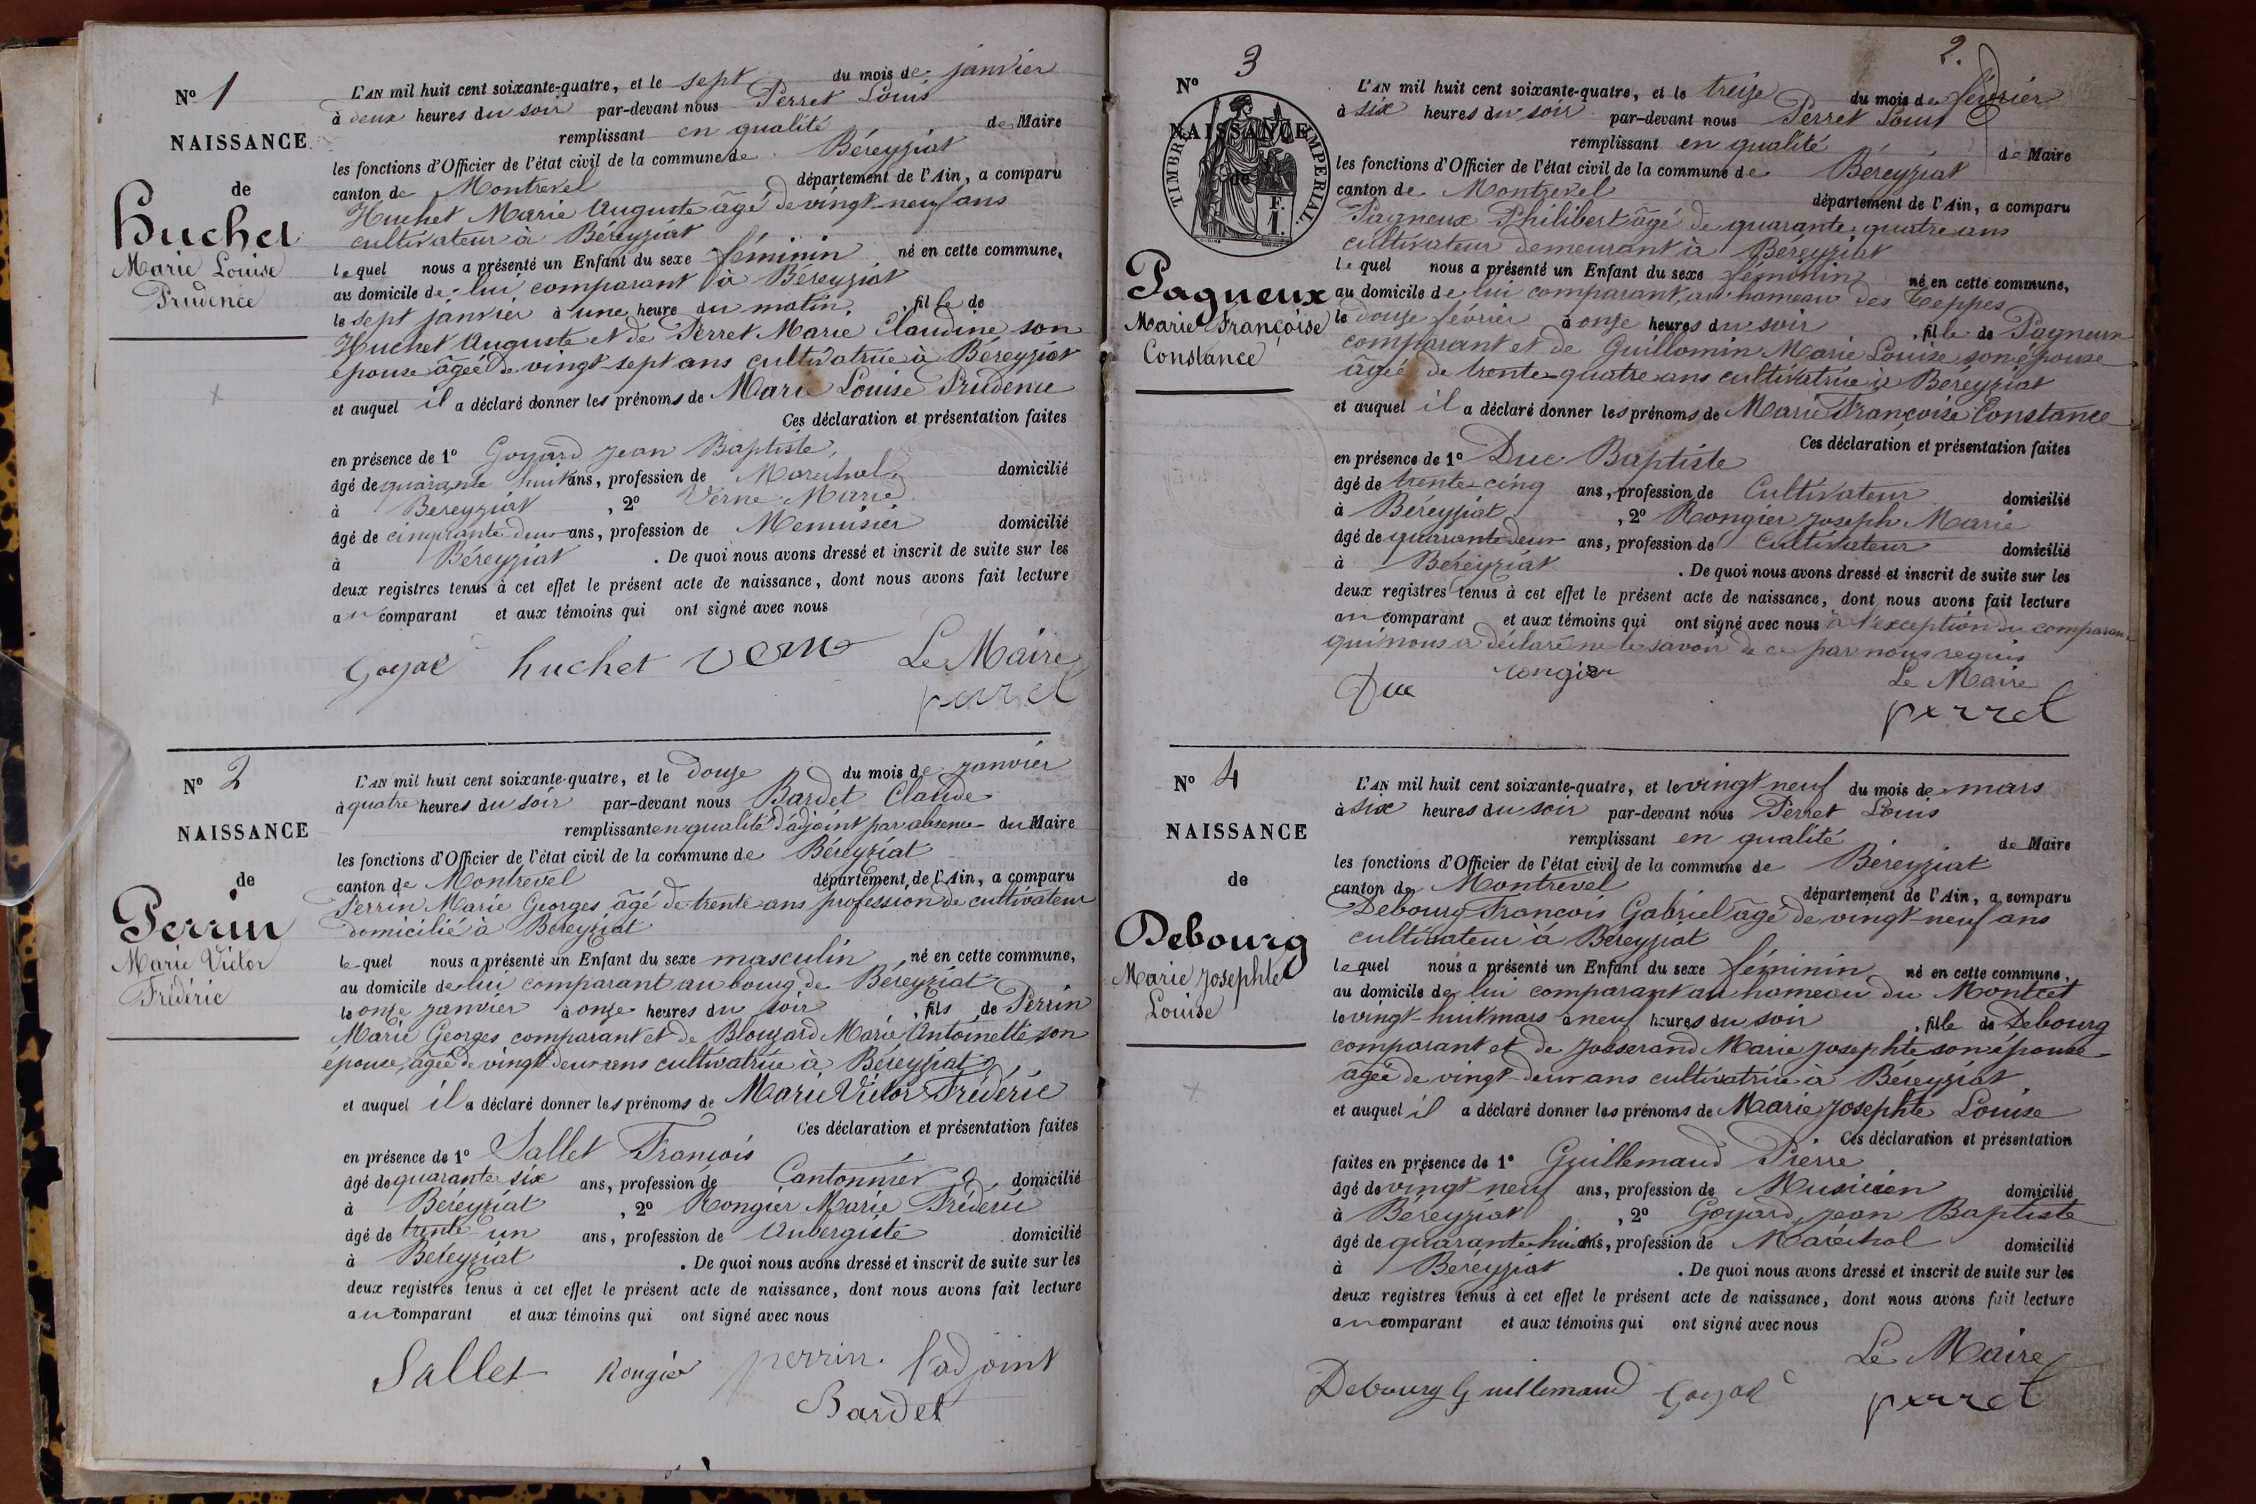 N° 1
NAISSANCE
de
Huchet
Marie Louise
Prudence
L'AN mil huit cent soixante-quatre, et le sept du mois de janvier
à deux heures du soir par-devant nous Perret Louis
remplissant en qualité de Maire
les fonctions d'Officier de l'état civil de la commune de Béreyziat
canton de Montrevel département de l'Ain, a comparu
Huchet Marie Auguste âgé de vingt-neuf ans
cultivateur à Béreyziat
lequel nous a présenté un Enfant du sexe féminin né en cette commune,
au domicile de lui comparant à Béreyziat
le sept janvier à une heure du matin, fille de
Huchet Auguste et de Perret Marie Claudine son
épouse âgée de vingt-sept ans cultivatrice à Béreyziat
et auquel il a déclaré donner les prénoms de Marie Louise Prudence
Ces déclaration et présentation faites
en présence de 1° Goyard Jean Baptiste,
âgé de quarante huit ans, profession de Marechal domicilié
à Bereyziat, 2° Verne Marie
âgé de cinquante deux ans, profession de Menuisier domicilié
à Béreyziat. De quoi nous avons dressé et inscrit de suite sur les
deux registres tenus à cet effet le présent acte de naissance, dont nous avons fait lecture
au comparant et aux témoins qui ont signé avec nous
Goyard huchet verne Le Maire
perret
N° 2
NAISSANCE
de
Perrin
Marie Victor
Frédéric
L'AN mil huit cent soixante-quatre, et le douze du mois de janvier
à quatre heures du soir par-devant nous Bardet Claude
remplissant en qualité d'adjoint par absence du Maire
les fonctions d'Officier de l'état civil de la commune de Béreyziat
canton de Montrevel département de l'Ain, a comparu
Perrin Marie Georges âgé de trente ans profession de cultivateur
domicilié à Béreyziat
lequel nous a présenté un Enfant du sexe masculin, né en cette commune,
au domicile de lui comparant au bourg de Béreyziat
le onze janvier à onze heures du soir, fils de Perrin
Marie Georges comparant et de Blouzard Marie Antoinette son
épouse, agée de vingt deux ans cultivatrice à Béreyziat
et auquel il a déclaré donner les prénoms de Marie Victor Frédéric
Ces déclaration et présentation faites
en présence de 1° Sallet François
âgé de quarante six ans, profession de Cantonnier domicilié
à Béréyziat, 2° Rongier Marie Fréderic
âgé de trente un ans, profession de Aubergiste domicilié
à Bereyziat. De quoi nous avons dressé et inscrit de suite sur les
deux registres tenus à cet effet le présent acte de naissance, dont nous avons fait lecture
au comparant et aux témoins qui ont signé avec nous
Sallet Rongier perrin. l'adjoint
Bardet
2.
N° 3
NAISSANCE
de
TIMBRE IMPERIAL.
1 F.
Pagneux
Marie Françoise
Constance
L'AN mil huit cent soixante-quatre, et le treize du mois de février
à six heures du soir par-devant nous Perret Louis
remplissant en qualité de Maire
les fonctions d'Officier de l'état civil de la commune de Béreyziat
canton de Montrevel département de l'Ain, a comparu
Pagneux Philibert âgé de quarante quatre ans
cultivateur demeurant à Béreyziat
lequel nous a présenté un Enfant du sexe féminin né en cette commune,
au domicile de lui comparant, au hameau des Teppes
le douze février à onze heures du soir, fille de Pagneux
comparant et de Guillomin Marie Louise son épouse
âgée de trente-quatre ans cultivatrice à Béreyziat
et auquel il a déclaré donner les prénoms de Marie Françoise Constance
Ces déclaration et présentation faites
en présence de 1° Duc Baptiste
âgé de trente-cinq ans, profession de Cultivateur domicilié
à Béreyziat, 2° Rongier Joseph Marie
âgé de quarante deux ans, profession de Cultivateur domicilié
à Béreyziat. De quoi nous avons dressé et inscrit de suite sur les
deux registres tenus à cet effet le présent acte de naissance, dont nous avons fait lecture
au comparant et aux témoins qui ont signé avec nous à l'exception du comparant
qui nous a déclaré ne le savoir de ce par nous requis
Duc rongier Le Maire
perret
N° 4
NAISSANCE
de
Debourg
Marie Josephte
Louise
L'AN mil huit cent soixante-quatre, et le vingt neuf du mois de mars
à six heures du soir par-devant nous Perret Louis
remplissant en qualité de Maire
les fonctions d'Officier de l'état civil de la commune de Béreyziat
canton de Montrevel département de l'Ain, a comparu
Debourg François Gabriel âgé de vingt-neuf ans
cultivateur à Béreyziat
lequel nous a présenté un Enfant du sexe féminin né en cette commune,
au domicile de lui comparant au hameau du Montcet
le vingt-huit mars à neuf heures du soir, fille de Debourg
comparant et de Josserand Marie Josephte son épouse
agée de vingt-deux ans cultivatrice à Béreyziat
et auquel il a déclaré donner les prénoms de Marie Josephte Louise
Ces déclaration et présentation
faites en présence de 1° Guillemaud Pierre
âgé de vingt neuf ans, profession de Musicien domicilié
à Béreyziat, 2° Goyard Jean Baptiste
âgé de quarante huit ans, profession de Maréchal domicilié
à Béreyziat. De quoi nous avons dressé et inscrit de suite sur les
deux registres tenus à cet effet le présent acte de naissance, dont nous avons fait lecture
au comparant et aux témoins qui ont signé avec nous
Le Maire
Debourg Guillemaud Goyard perret